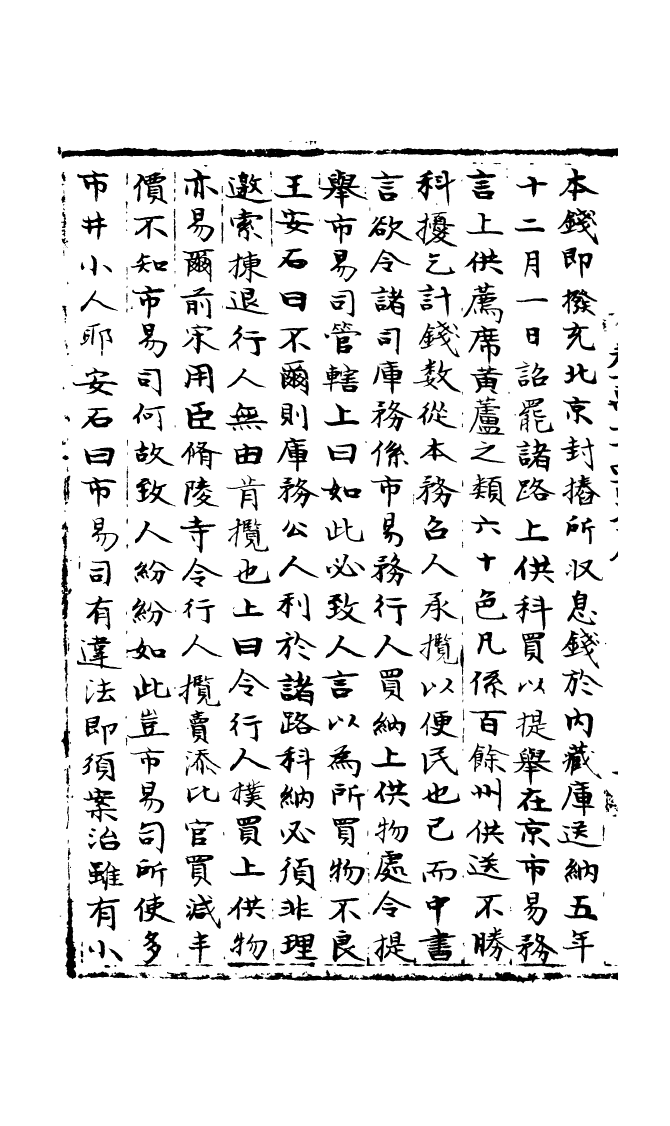 本錢即撥充北京封樁所収息錢於内藏庫送納五年
十二月一日詔罷諸路上供科買以提舉在京市易務
言上供薦席黃蘆之類六十色凡係百餘州供送不勝
科擾乞計錢數從本務召人承攬以便民也已而中書
言欲令諸司庫務係市易務行人買納上供物處令提
舉市易司管轄上曰如此必致人言以為所買物不良
王安石曰不爾則庫務公人利於諸路科納必須非理
邀索揀退行人無由肯攬也上曰令行人撲買上供物
亦易爾前宋用臣脩陵寺令行人攬賣添比官買減半
價不知市易司何故致人紛紛如此豈市易司所使多
市井小人耶安石曰市易司有違法即須案治雖有小